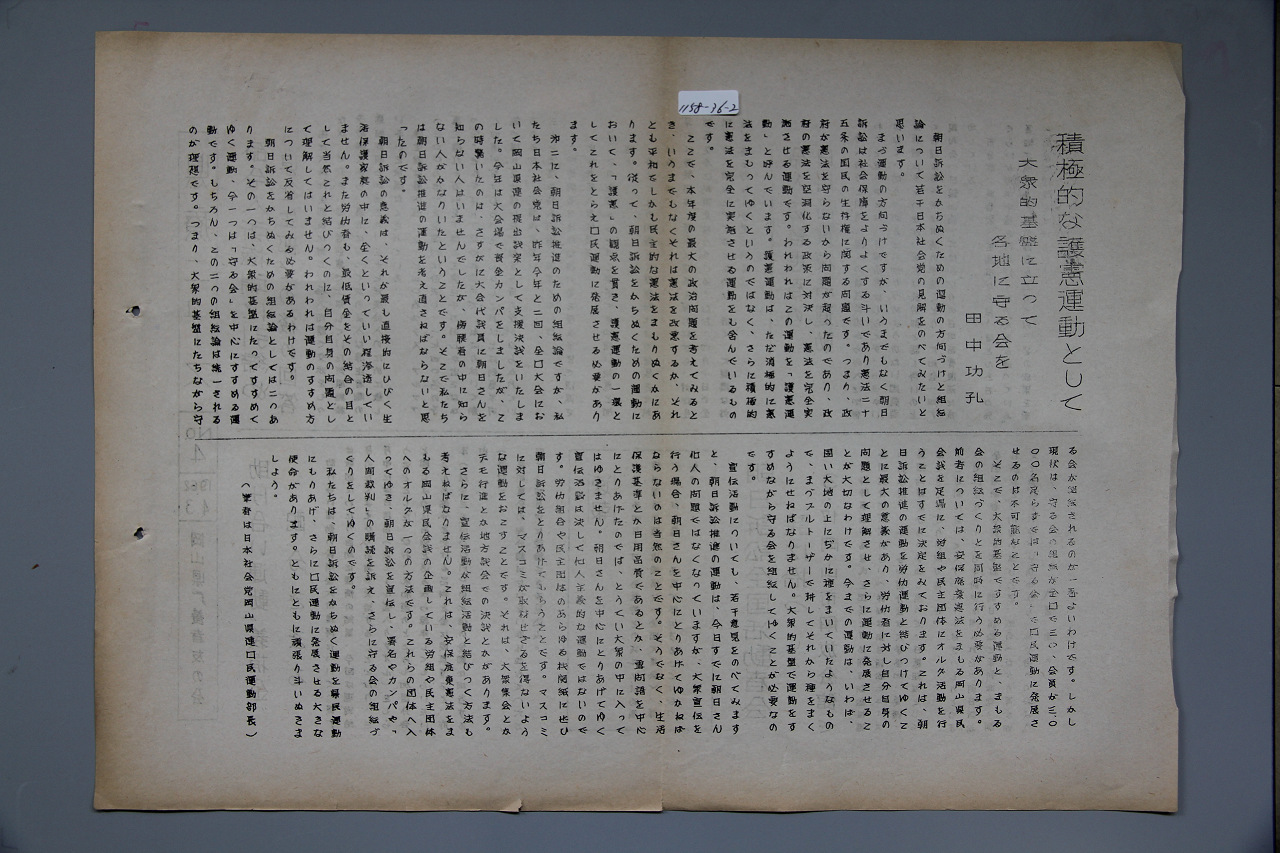 1158-36-2
積極的な護憲運動として
大衆的基盤に立って
各地に守る会を
田中功孔
朝日訴訟をかちぬくための運動の方向づけと組織
論について若干日本社会党の見解をのべてみたいと
思います。
まづ運動の方向づけですが、いうまでもなく朝日
訴訟は社会保障をよりよくする斗いであり憲法二十
五条の国民の生存権に関する問題です。つまり、政
府が憲法を守らないから問題が起ったのであり、政
府の憲法を空洞化する政策に対決し、憲法を完全実
施させる運動です。われわれはこの運動を「護憲運
動」と呼んでいます。護憲運動は、ただ消極的に憲
法をまもってゆくというのではなく、さらに積極的
に憲法を完全に実施させる運動をも含んでいるもの
です。
ここで、本年度の最大の政治問題を考えてみると
き、いうまでもなくそれは憲法を改悪するか、それ
とも平和でしかも民主的な憲法をまもりぬくかにあ
ります。従って、朝日訴訟をかちぬくための運動に
おいて、「護憲」の観点を貫き、護憲運動の一環と
してこれをとらえ口民運動に発展させるぬ要があり
ます。
才二に、朝日訴訟推進のための組織論ですが、私
たち日本社会党は、昨年今年と二回、全口大会にお
いて岡山県連の提出議案として支援決議をいたしま
した。今年は大会場で資金カンパをしましたが、こ
の時驚いたのは、さすがに大会代議員に朝日さんを
知らない人はいませんでしたが、傍聴者の中に知ら
ない人がかなりいたということです。そこで私たち
は朝日訴訟推進の運動を考え直さねばならないと思
ったのです。
朝日訴訟の意義は、それが最も直接的にひびく生
活保護家庭の中に、全くといっていい程滲透してい
ません。また労仂者も、最低賃金をその結合の目と
して当然これと結びつくのに、自分自身の問題とし
て理解してはいません。われわれは運動のすすめ方
について反省してみるぬ要があるわけです。
朝日訴訟をかちぬくための組織論としては二つあ
ります。その一つは、大衆的基盤にたってすすめて
ゆく運動、今一つは「守る会」を中心にすすめる運
動です。もちろん、この二つの組織論は統一される
のが理想です。つまり、大衆的基盤にたちながら守
る会が組織されるのが一番よいわけです。しかし
現状は、守る会の組織が全口で三〇、会員が三、〇
〇〇名足らずでは「守る会」で口民運動に発展さ
せるのは不可能なことです。
そこで、大衆的基盤ですすめる運動と、まもる
会の組織づくりとを同時に行う必要があります。
前者については、安保廃棄憲法をまもる岡山県民
会議を足場に、労組や民主団体にオルグ活動を行
うことはすでに決定をみております。これは、朝
日訴訟推進の運動を労仂運動と結びつけてゆくこ
とに最大の意義があり、労仂者に対し自分自身の
問題として理解させ、さらに運動に発展させるこ
とが大切なわけです。今までの運動は、いわば、
固い大地の上にぢかに種をまいていたようなもの
で、まづブルトーザーで耕してそれから種をまく
ようにせねばなりません。大衆的基盤で運動をす
すめながら守る会を組織してゆくことが必要なの
です。
宣伝活動についても、若干意見をのべてみます
と、朝日訴訟推進の運動は、今日すでに朝日さん
個人の問題ではなくなっていますが、大衆宣伝を
行う場合、朝日さんを中心にとりあげてゆかねば
ならないのは当然のことです。そうでなく、生活
保護基準とか日用品費であるとか、重岡語を中心
にとりあげたのでは、とうてい大衆の中に入って
はゆきません。朝日さんを中心にとりあげてゆく
宣伝活動は決して個人主義的な運動ではないので
す。労仂組合や民主団体のあらゆる機関紙にぜひ
朝日訴訟をとりあげてもらうことです。マスコミ
に対しては、マスコミが取材せざるを得ないよう
な運動をおこすことです。それは、大衆集会とか
デモ行進とか地方議会での決議とかがあります。
さらに、宣伝活動が組織活動と結びつく方法も
考えねばなりません。これは、安保廃棄憲法をま
もる岡山県民会議の企画している労組や民主団体
へのオルグが、一つの方法です。これらの団体へ入
ってゆき、朝日訴訟を宣伝し、署名やカンパや、「
人間裁判」の購読を訴え、さらに守る会の組織づ
くりをしてゆくのです。
私たちは、朝日訴訟をかちぬく運動を県民運動
にもりあげ、さらに口民運動に発展させる大きな
使命があります。ともにともに頑張り斗いぬきま
しょう。
(筆者は日本社会党岡山県連口民運動部長)